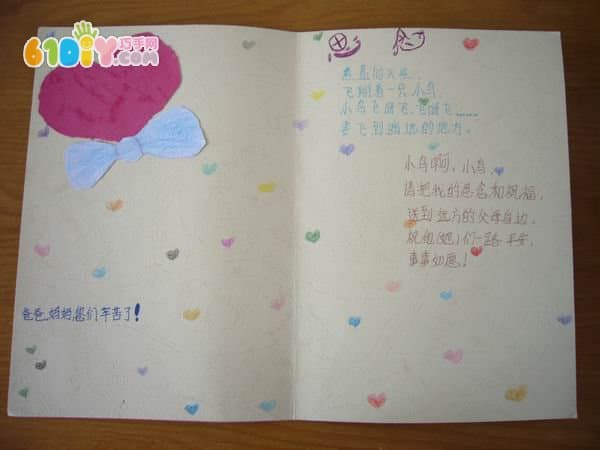 61DIY巧手网
.com
思念
蓝的天空,
飞翔着一只小鸟,
小鸟飞呀飞,飞呀飞……
要飞到遥远的地方。
小鸟啊,小鸟,
请把我的思念和祝福,
送到远方的父母身边,
祝他(她)们一路平安,
事事如愿!
爸爸、妈妈,您们辛苦了!